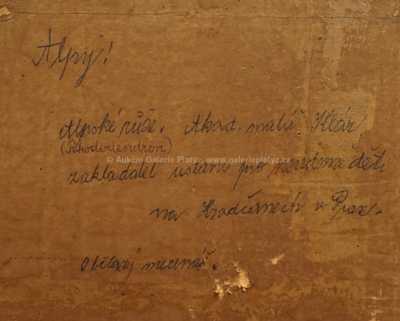 Alpy!
Alpské růže. Akad. malíř. Klár
(Rhododendron)
© Aukční Galerie Platýz, www.galerieplatyz.cz
zakladatel ústavu pro nevidomé děti
na Hradčanech v Praze.
Obětavý mecenáš.